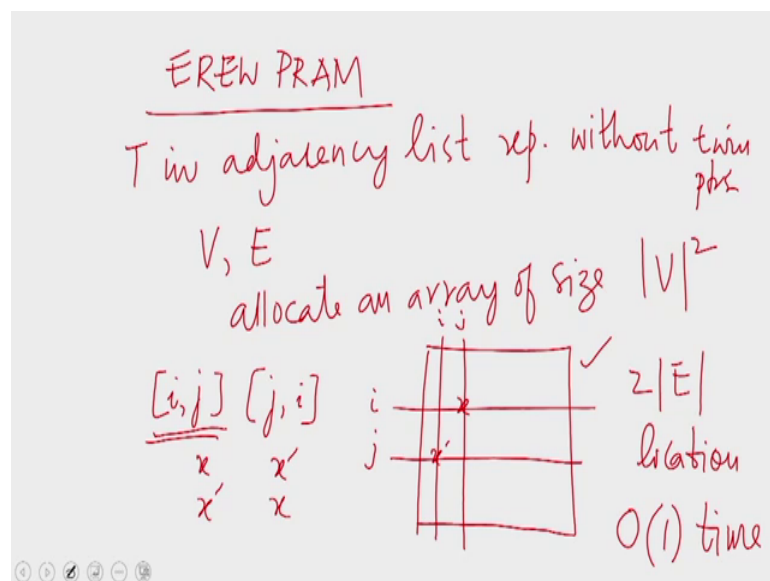 EREW PRAM
T in adjacency list rep. without twin
ptrs
V, E
allocate an array of size |V|²
i j
[i,j] [j,i] i x ✓ 2|E|
x x′ j x′ location
x′ x O(1) time